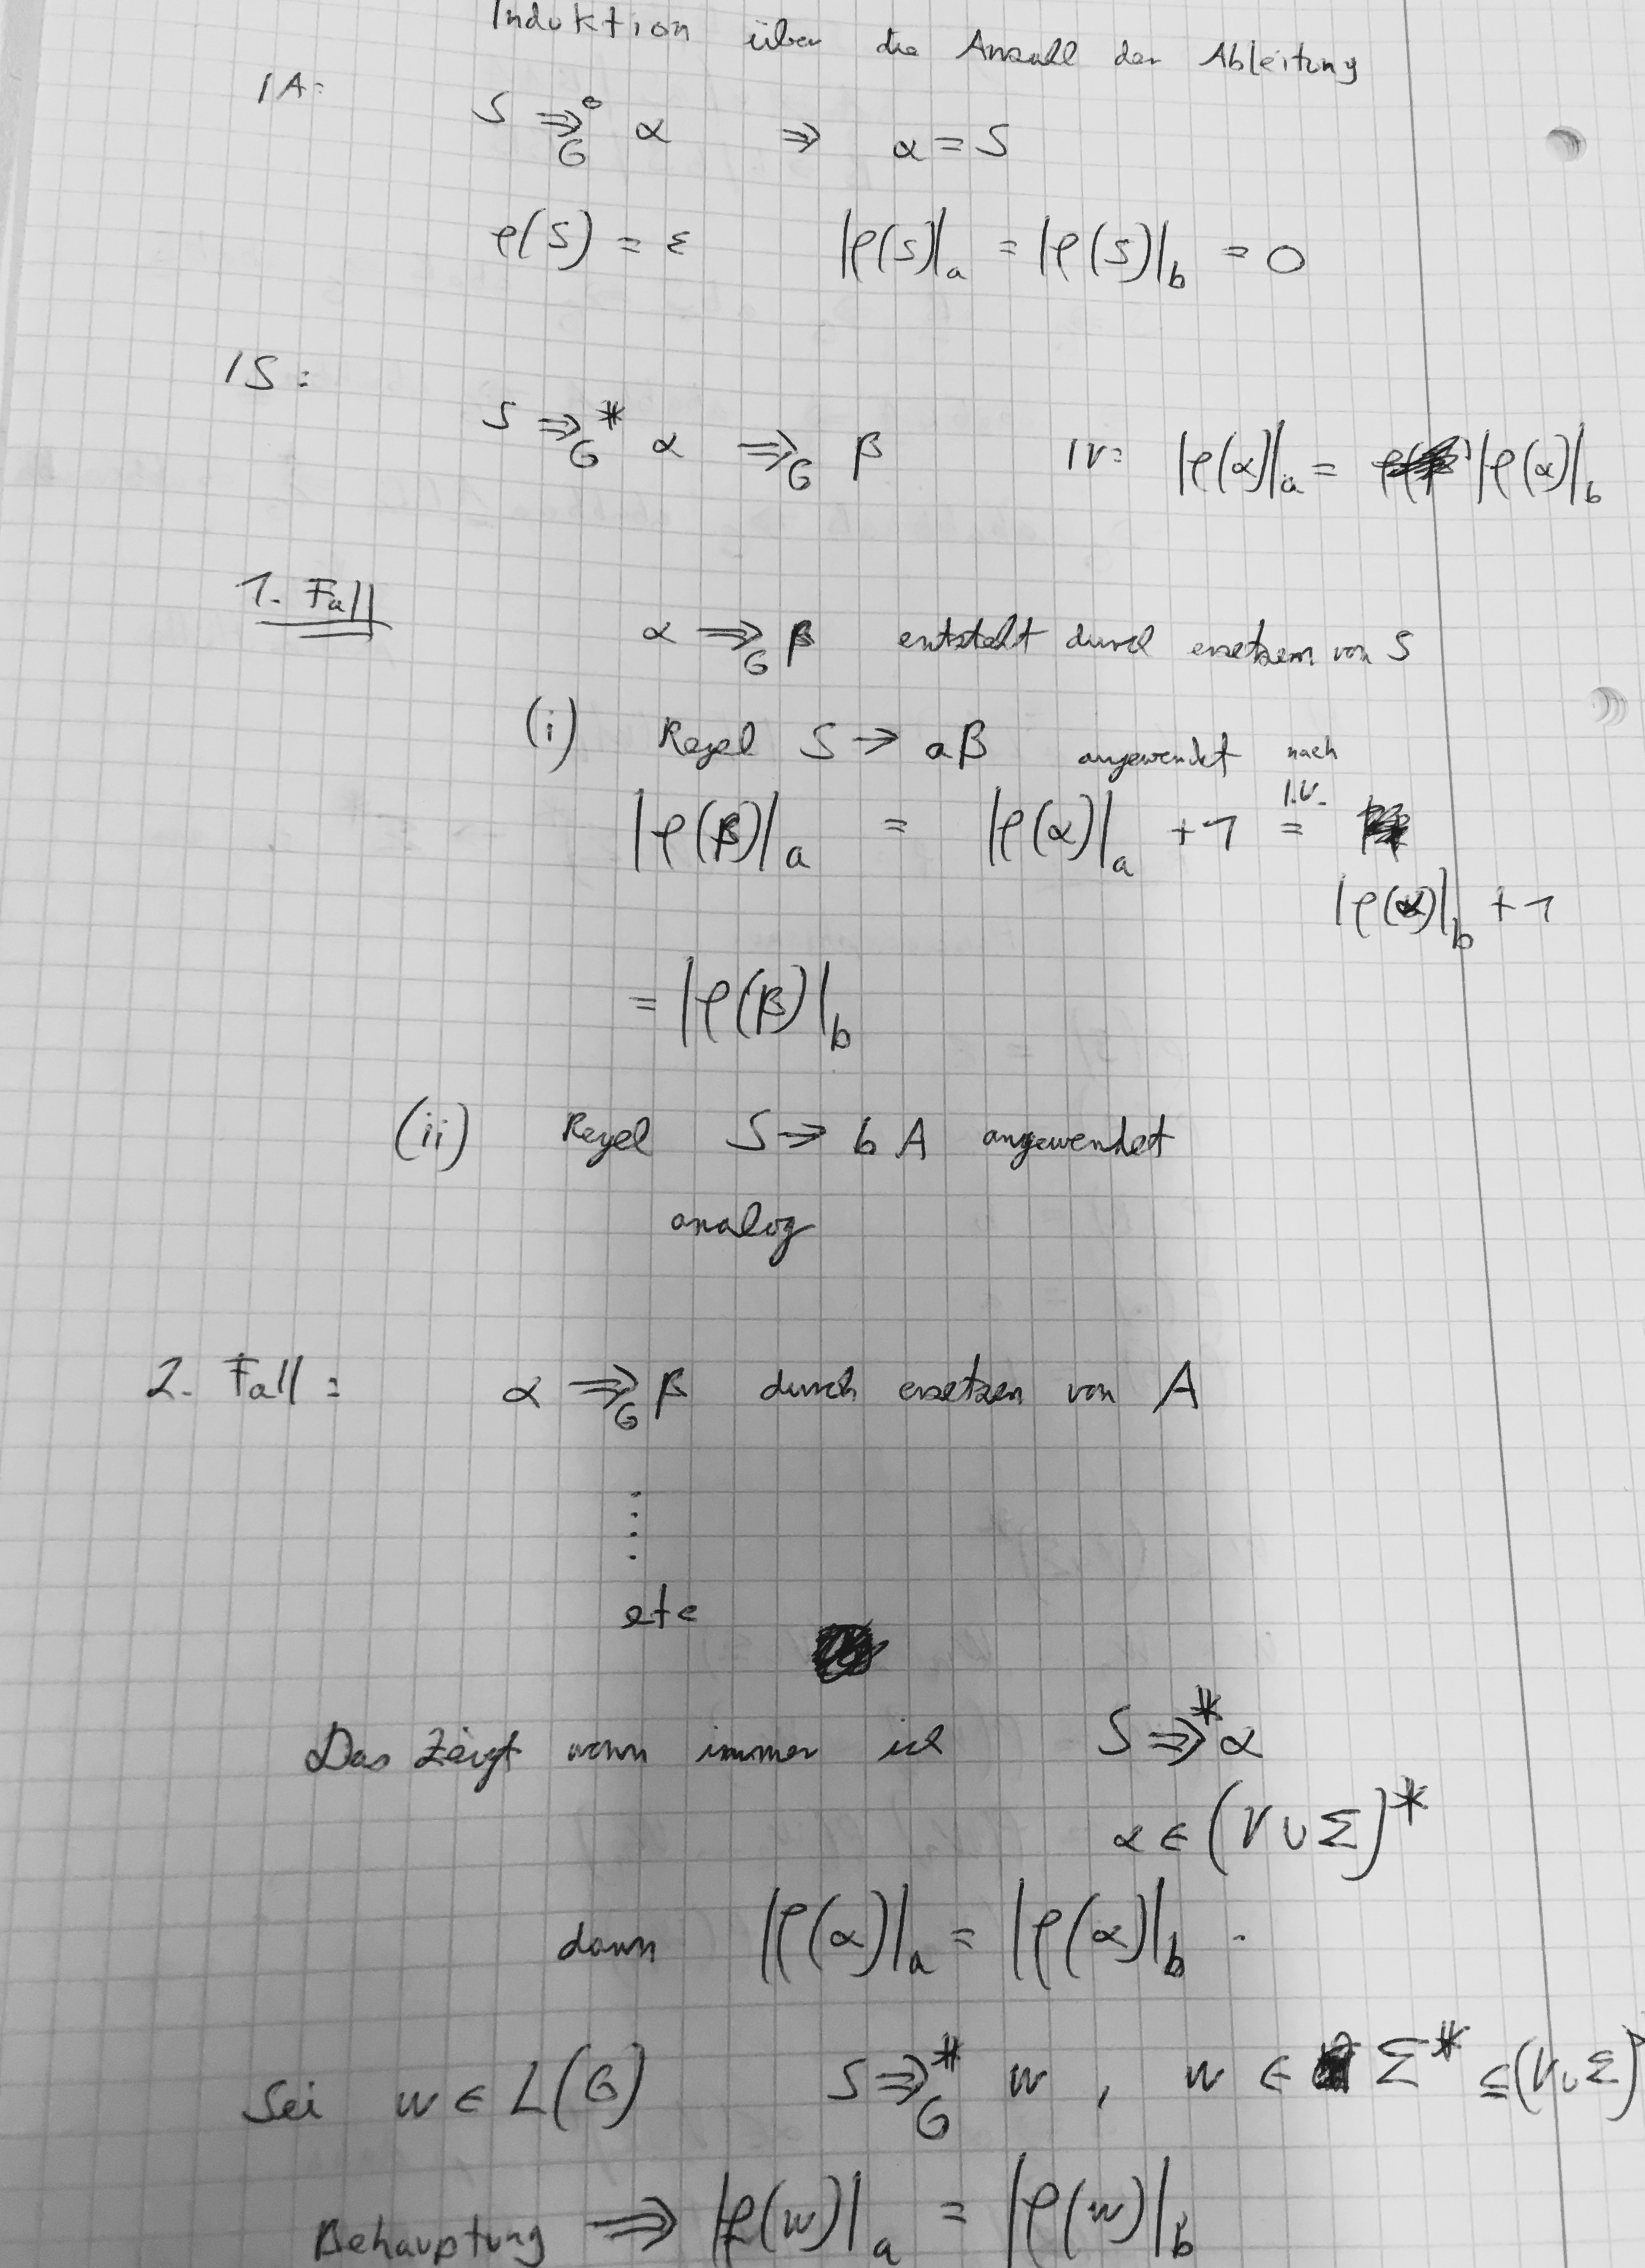 Induktion über die Anzahl der Ableitung
IA: S ⇒_G^0 α ⇒ α = S
φ(S) = ε |φ(S)|_a = |φ(S)|_b = 0
IS:
S ⇒_G^* α ⇒_G β IV: |φ(α)|_a = |φ(α)|_b
1. Fall
α ⇒_G β entsteht durch ersetzem von S
(i) Regel S → aB angewendet nach
|φ(β)|_a = |φ(α)|_a + 1 =^{I.V.}
|φ(α)|_b + 1
= |φ(β)|_b
(ii) Regel S → bA angewendet
analog
2. Fall: α ⇒_G β durch ersetzen von A
⋮
etc
Das zeigt wann immer ich S ⇒^* α
α ∈ (V ∪ Σ)^*
dann |φ(α)|_a = |φ(α)|_b .
Sei w ∈ L(G) S ⇒_G^* w , w ∈ Σ^* ⊆ (V ∪ Σ)^*
Behauptung ⇒ |φ(w)|_a = |φ(w)|_b